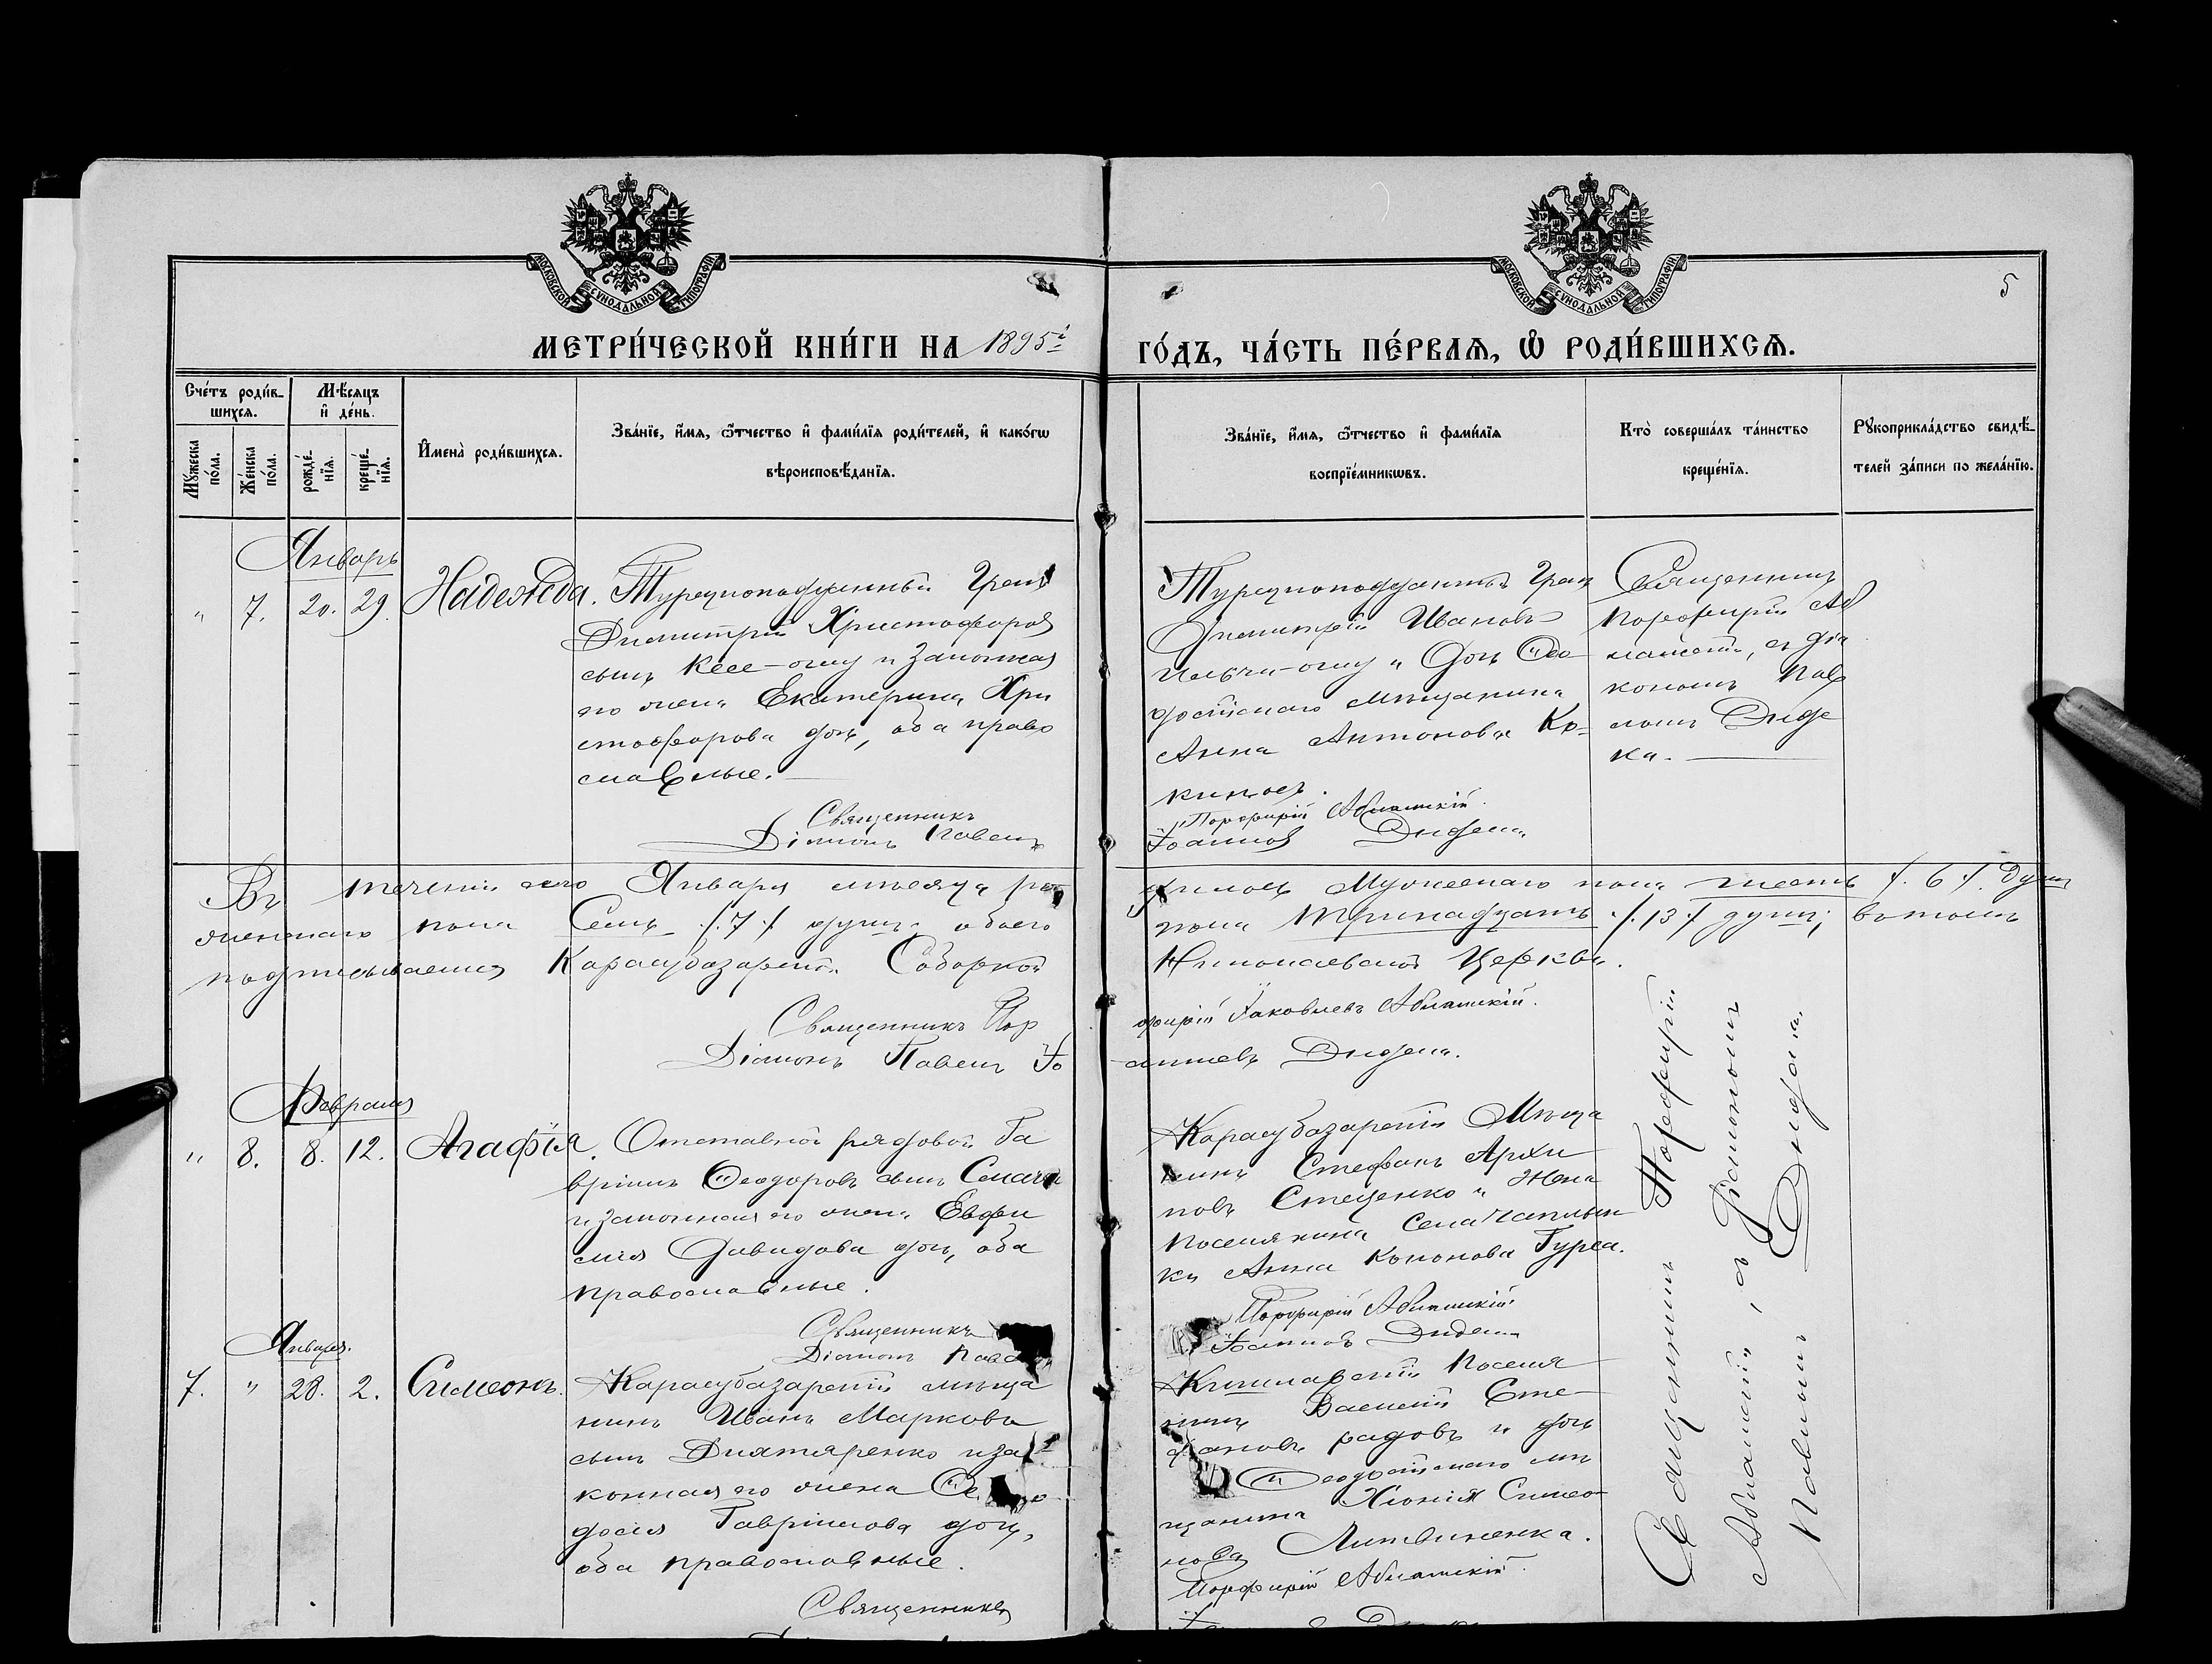 МОСКОВСКОЙ СѴНОДАЛЬНОЙ ТИПОГРАФІИ
МОСКОВСКОЙ СѴНОДАЛЬНОЙ ТИПОГРАФІИ
5
МЕТРИ́ЧЕСКОЙ КНИ́ГИ НА 1895й
ГО́ДЪ, ЧА́СТЬ ПЕ́РВАѦ, Ѡ РОДИ́ВШИХСѦ.
Сче́тъ роди́в-
шихсѧ.
Мѣ́сѧцъ
и҆ де́нь.
Мꙋ́жеска
по́ла.
Же́нска
по́ла.
рожде́-
нїѧ.
креще́-
нїѧ.
И҆мена̀ роди́вшихсѧ.
Зва́нїе, и҆́мѧ, ѻ҆́тчество и҆ фами́лїѧ роди́телей, и҆ како́гѡ
вѣроисповѣ́данїѧ.
Зва́нїе, и҆́мѧ, ѻ҆́тчество и҆ фами́лїѧ
воспрїе́мникѡвъ.
Кто̀ соверша́лъ та́инство
креще́нїѧ.
Рꙋкоприкла́дство свидѣ́-
телей за́писи по жела́нїю.
Январь
" 7. 20. 29. Надежда.
Турецкоподданный Грекъ
Димитрій Христофоровъ
сынъ Кесе-оглу и законная
его жена Екатерина Хри
стофорова дочь, оба право
славные.
Священникъ
Діаконъ Павелъ
Турецкоподданный Грекъ
Димитрій Ивановъ
-оглу и дочь Ѳео-
досійскаго мѣщанина
Анна Антонова Ко-
Порфирій Аблашскій.
Іоанновъ Дидена
Священникъ
Порфирій Аб
лашскій, съ діа
кономъ Пав
ломъ Диде
на.
Въ теченіи сего Января мѣсяца ро
дилось Мужескаго пола шесть /. 6 /. душъ
женскаго пола Семь /. 7 /. душъ, обоего
пола тринадцать /. 13 /. душъ; въ томъ
подписываемся Карасубазарской Соборной
Николаевской Церкви.
Священникъ Пор
фирій Іаковлевъ Аблашскій.
Діаконъ Павелъ Іо
анновъ Дидена.
Февраля
" 8. 8. 12. Агафія.
Отставной рядовой Га
вріилъ Ѳеодоровъ сынъ
и законная его жена Евфи
мія Давидова дочь, оба
православные.
Священникъ
Діаконъ Павелъ
Карасубазарскій Мѣща
нинъ Стефанъ Архи
повъ Стеценко и жена
поселянина села Чаплын
ки Анна Кононова Гурса.
Порфирій Аблашскій.
Іоанновъ Дидена
Священникъ Порфирій
Аблашскій, съ Діакономъ
Павломъ Дидена.
Января.
7. " 28. 2. Симеонъ.
Карасубазарскій мѣща
нинъ Иванъ Маркова
сынъ Дихтяренко и за
конная его жена Ѳе
досія Гавріилова дочь,
оба православные.
Священникъ
поселя
нинъ Василій Сте-
фановъ радовъ и дочь
Ѳеодосійскаго мѣ
щанина Хіонія Симео-
нова Литвиненка.
Порфирій Аблашскій.